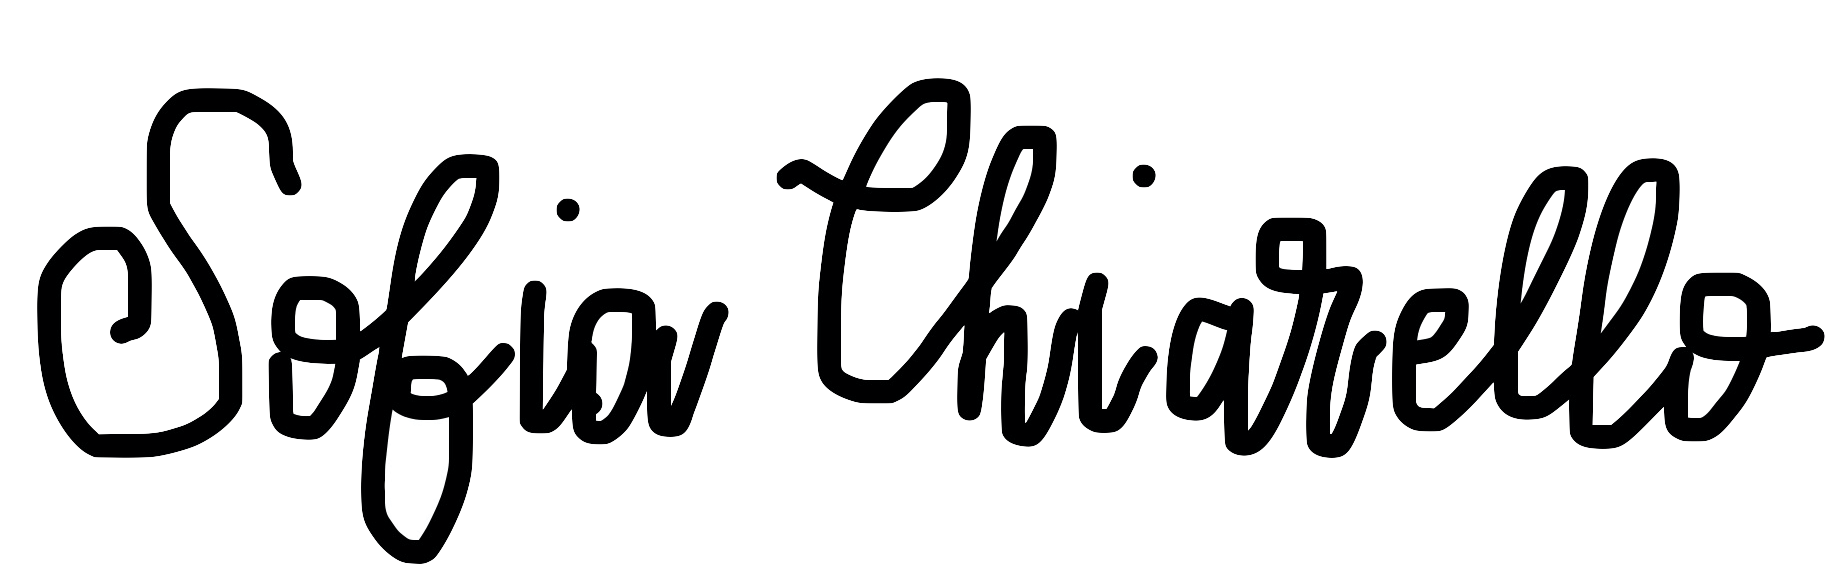 Sofia Chiarello